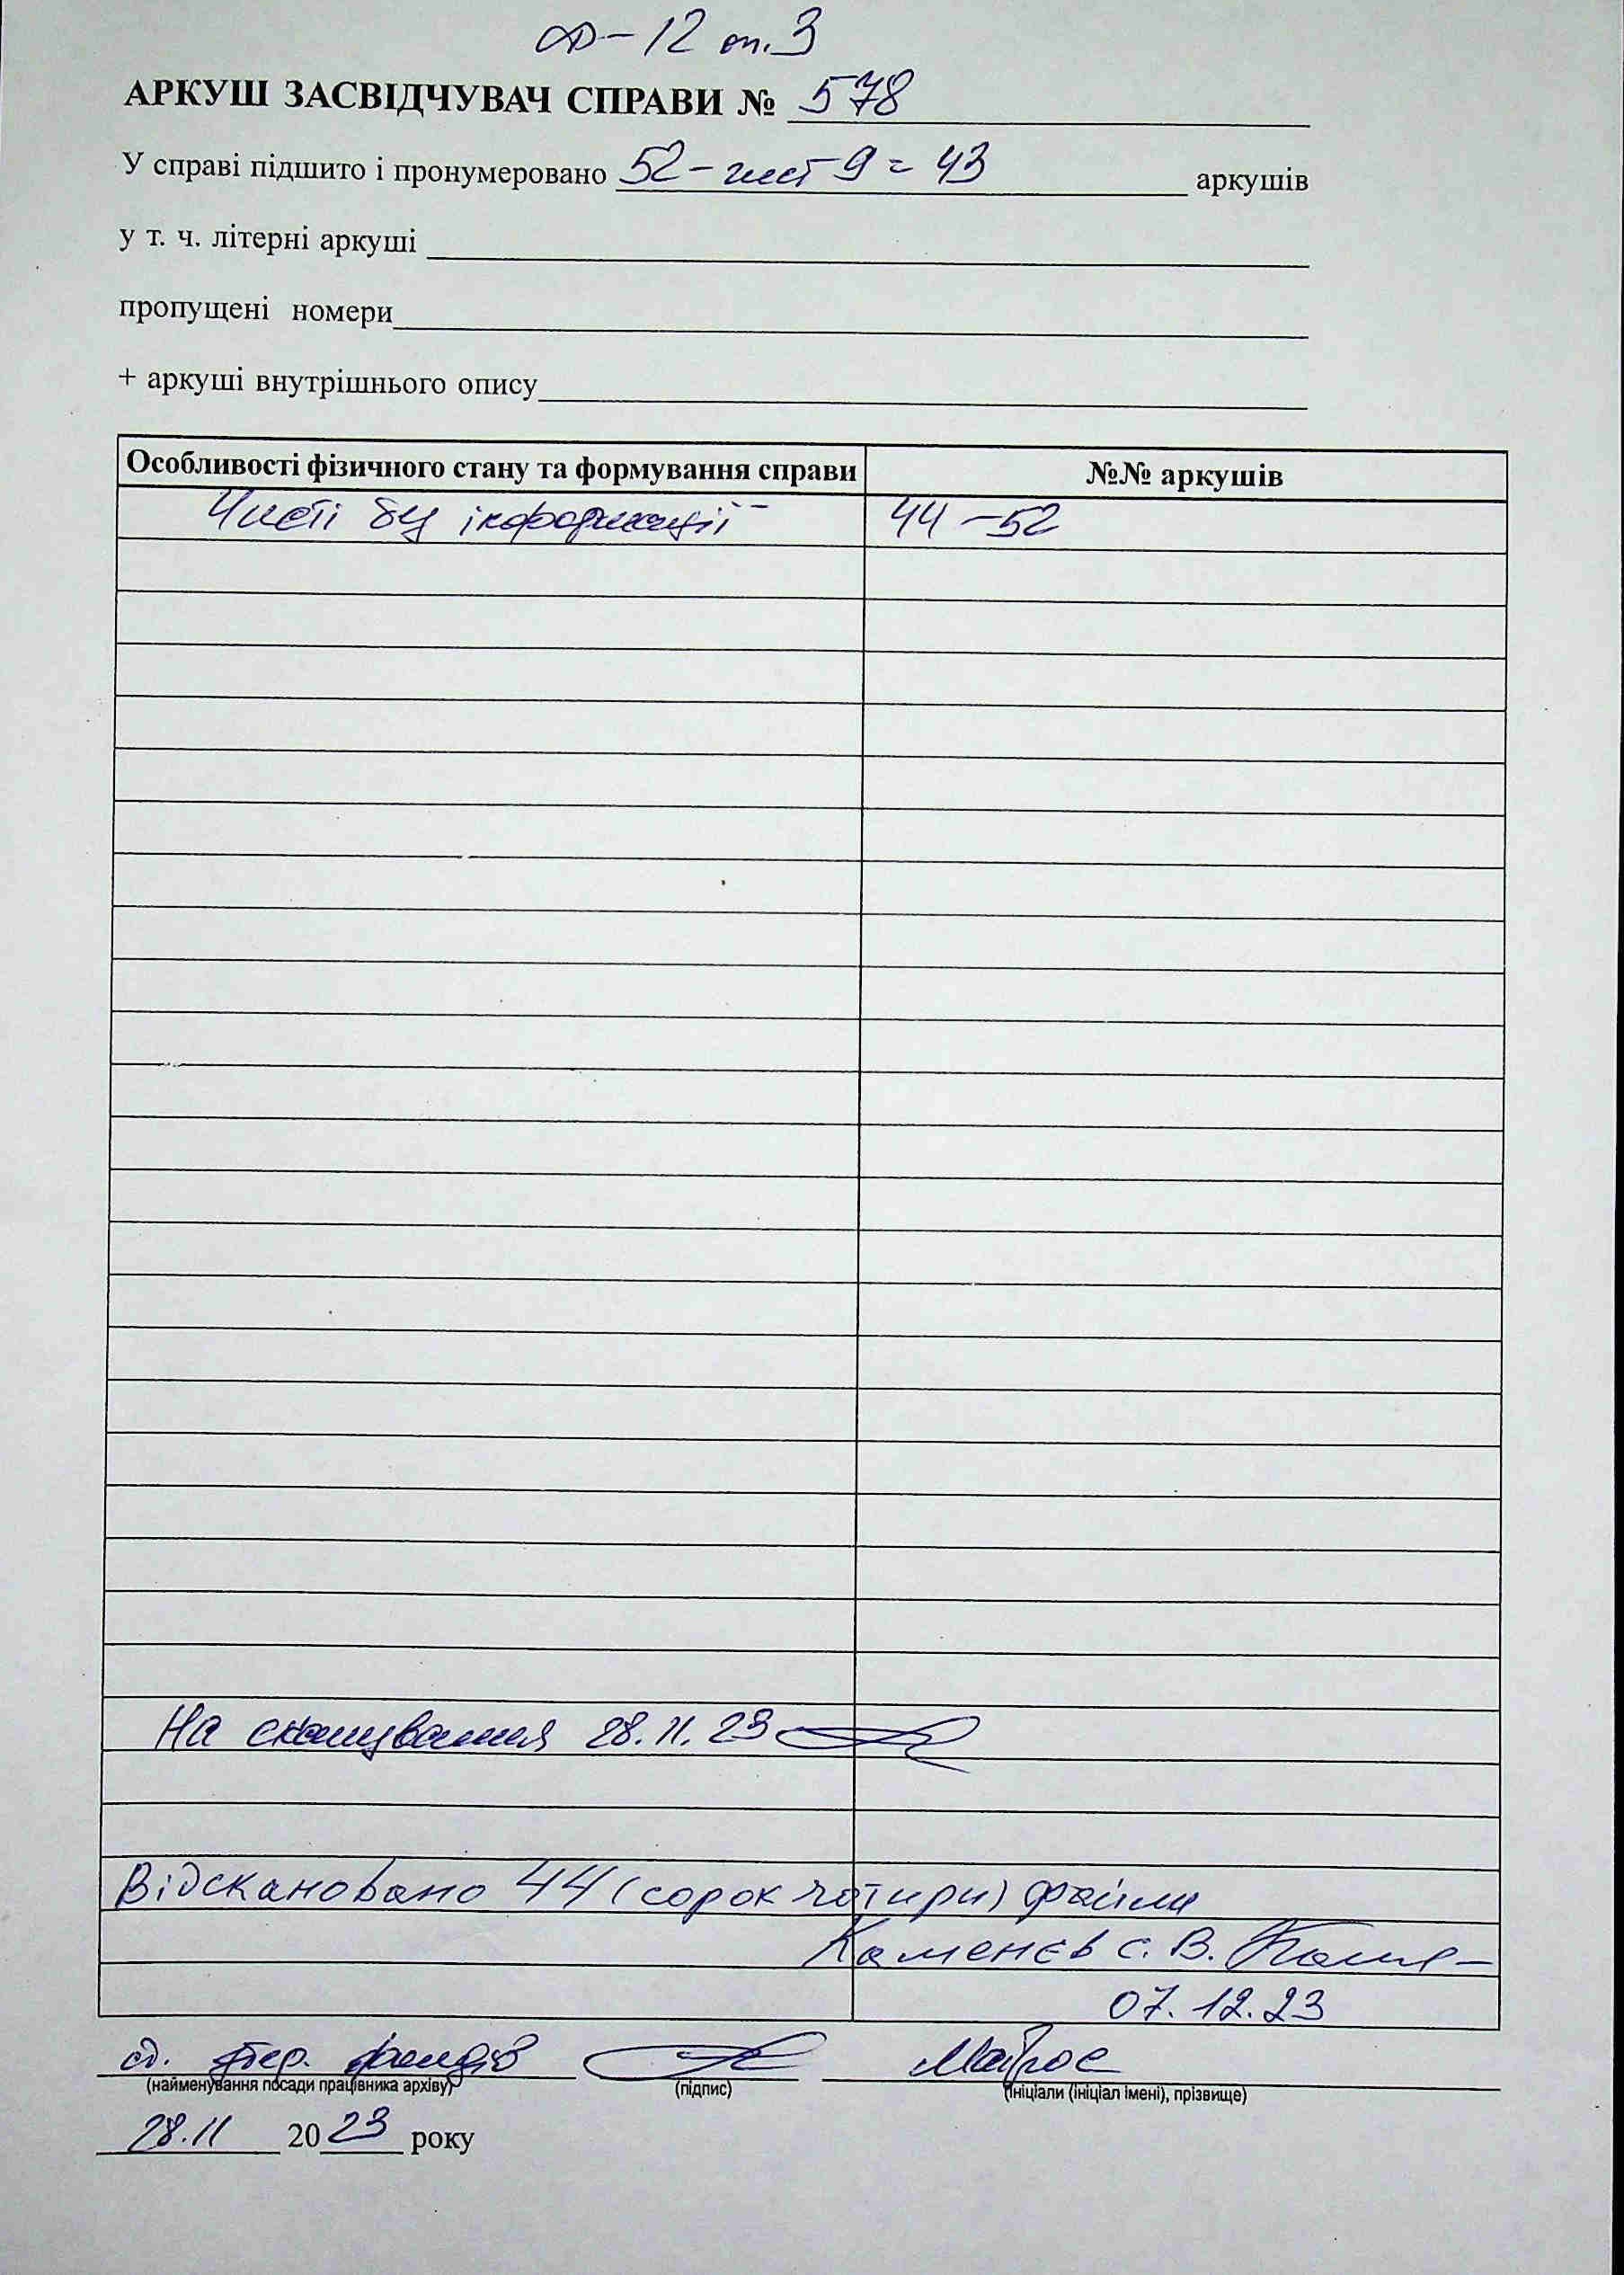 Ф-12 оп.3
АРКУШ ЗАСВІДЧУВАЧ СПРАВИ № 578
У справі підшито і пронумеровано 52 - чист 9 = 43 аркушів
у т. ч. літерні аркуші
пропущені номери
+ аркуші внутрішнього опису
Особливості фізичного стану та формування справи №№ аркушів
Чисті без інформації 44-52
На сканування 28.11.23
Відскановано 44 (сорок чотири) файли
Каменєв С. В.
07.12.23
ст. збер. фондів Матрос
(найменування посади працівника архіву) (підпис) (ініціали (ініціал імені), прізвище)
28.11 2023 року